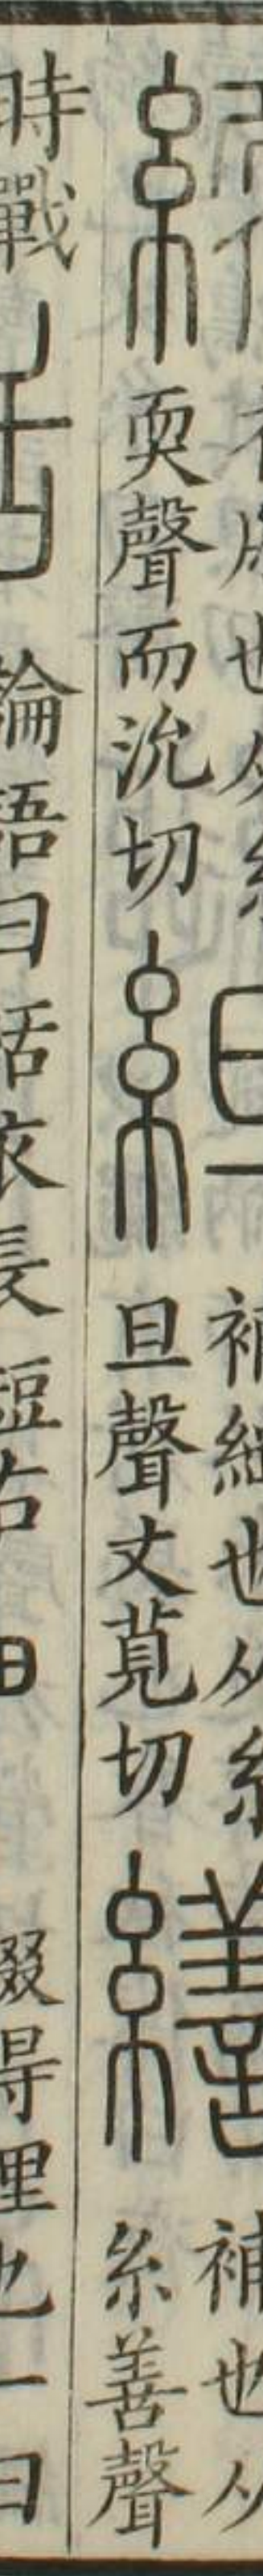 緛
也从糸
耎聲而沇切
䋎
補
也从糸
旦聲丈莧切
繕
補也从
糸善聲
時戰
論語曰絬衣長短右
綴得理也一曰